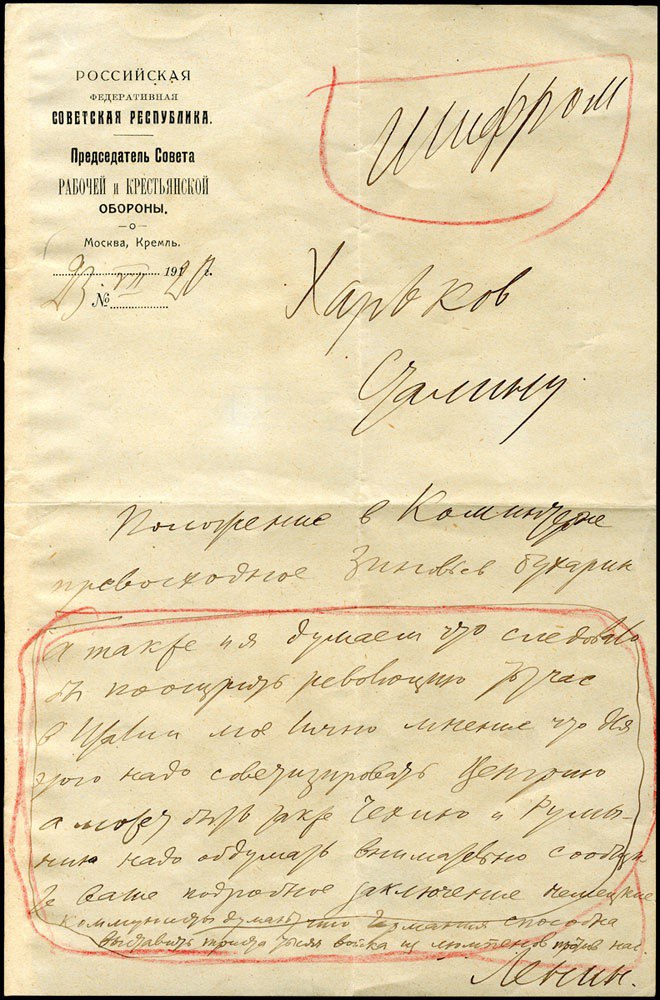 РОССИЙСКАЯ
ФЕДЕРАТИВНАЯ
СОВЕТСКАЯ РЕСПУБЛИКА.
Председатель Совета
РАБОЧЕЙ и КРЕСТЬЯНСКОЙ
ОБОРОНЫ.
Москва, Кремль.
23 VII 1920 г.
№
Шифром
Харьков
Сталину
Положение в Коминтерне
превосходное Зиновьев Бухарин
а также и я думаем что следовало
бы поощрять революцию тотчас
в Италии мое лично мнение что для
этого надо советизировать Венгрию
а может быть также Чехию и Румы-
нию надо обдумать внимательно сообщи-
те ваше подробное заключение немецкие
коммунисты думают что Германия способна
выставить триста тысяч войска из люмпенов против нас
Ленин.